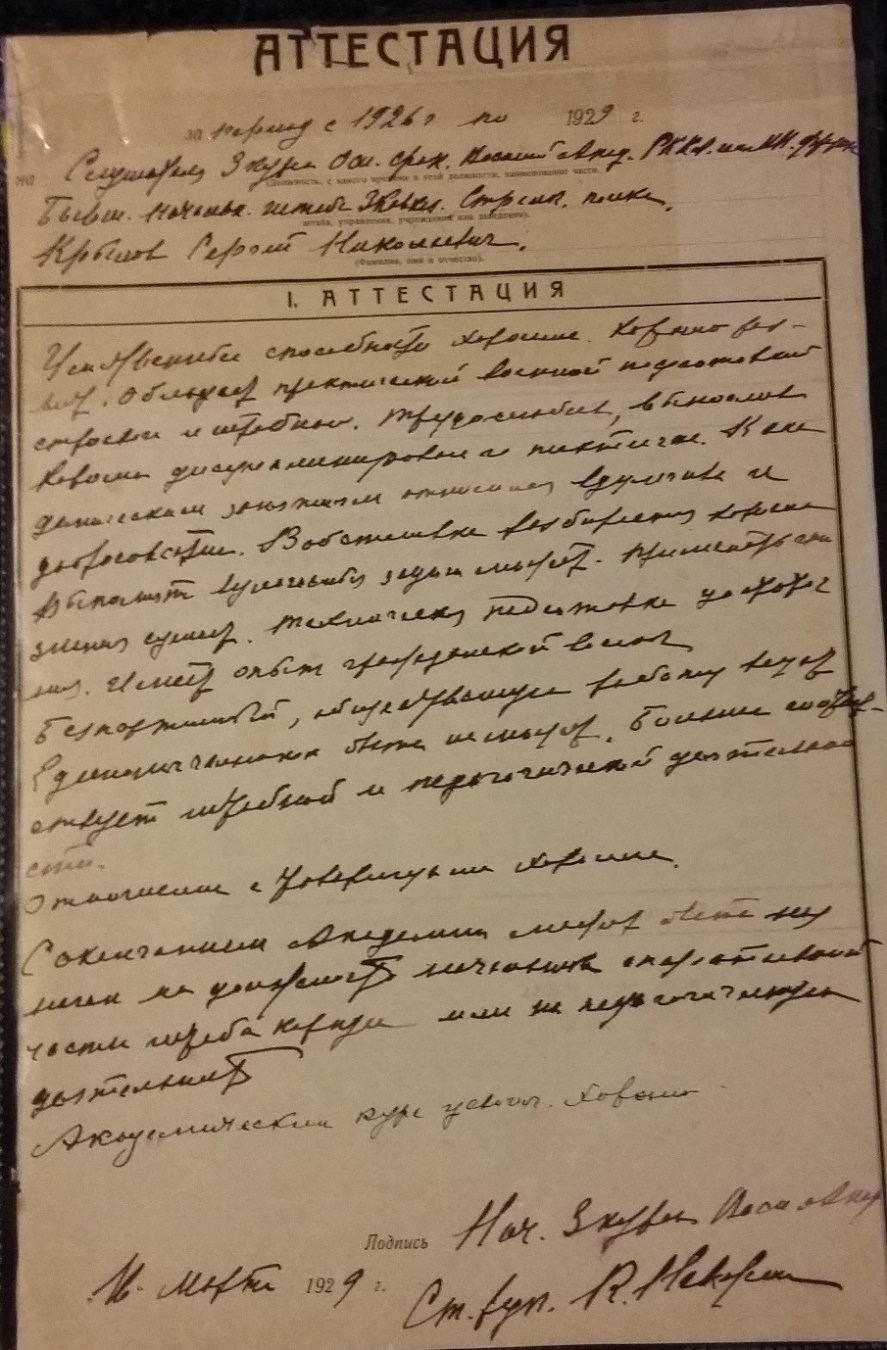 АТТЕСТАЦИЯ
за период с 1926 г по 1929 г.
на Слушателя 3 курса Осн. фак. Военной Акад. РККА им. М.В. Фрунзе
(Должность, с какого времени в этой должности, наименование части,
Бывш. Начальн. штаба Кавказ. Стрелк. полка,
штаба, управления, учреждения или заведения).
Крылов Сергей Николаевич.
(Фамилия, имя и отчество).
I. АТТЕСТАЦИЯ
Умственные способности хорошие. Хорошо раз-
вит. Обладает практической военной подготовкой
строевой и штабной. Трудолюбив, вынослив
дисциплинирован и тактичен. К ака-
демическим занятиям относился вдумчиво и
добросовестно. В обстановке разбирается хорошо
знания умеет. Техническая подготовка удовлетвор
ная. Имеет опыт гражданской войны
Беспартийный, общественную работу ведет
Единоначальником быть не может. Больше соответ-
ствует штабной и педагогической деятельно
сти.
Отношения с товарищами хорошие.
С окончанием Академии может быть наз
начен на должность начальника оперативной
части штаба корпуса или на педагогическую
деятельность
Академический курс усвоил хорошо
Подпись Нач. 3 курса Осн
16 Марта 1929 г.
Ст. рук.